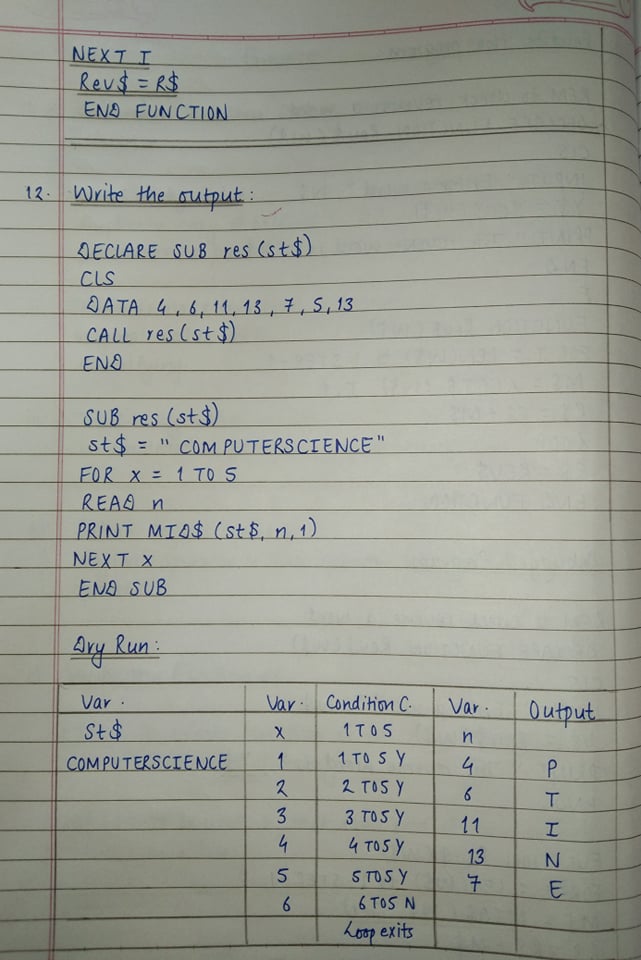 NEXT I
Rev$ = R$
END FUNCTION
12. Write the output:
DECLARE SUB res (st$)
CLS
DATA 4, 6, 11, 13, 7, 5, 13
CALL res(st$)
END
SUB res (st$)
st$ = " COMPUTERSCIENCE"
FOR x = 1 TO 5
READ n
PRINT MID$ (st$, n, 1)
NEXT x
END SUB
Dry Run:
Var. Var. Condition C. Var. Output
St$ x 1 TO 5 n
COMPUTERSCIENCE 1 1 TO 5 Y 4 P
2 2 TO5 Y 6 T
3 3 TO5 Y 11 I
4 4 TO5 Y 13 N
5 5 TO5 Y 7 E
6 6 TO5 N
Loop exits